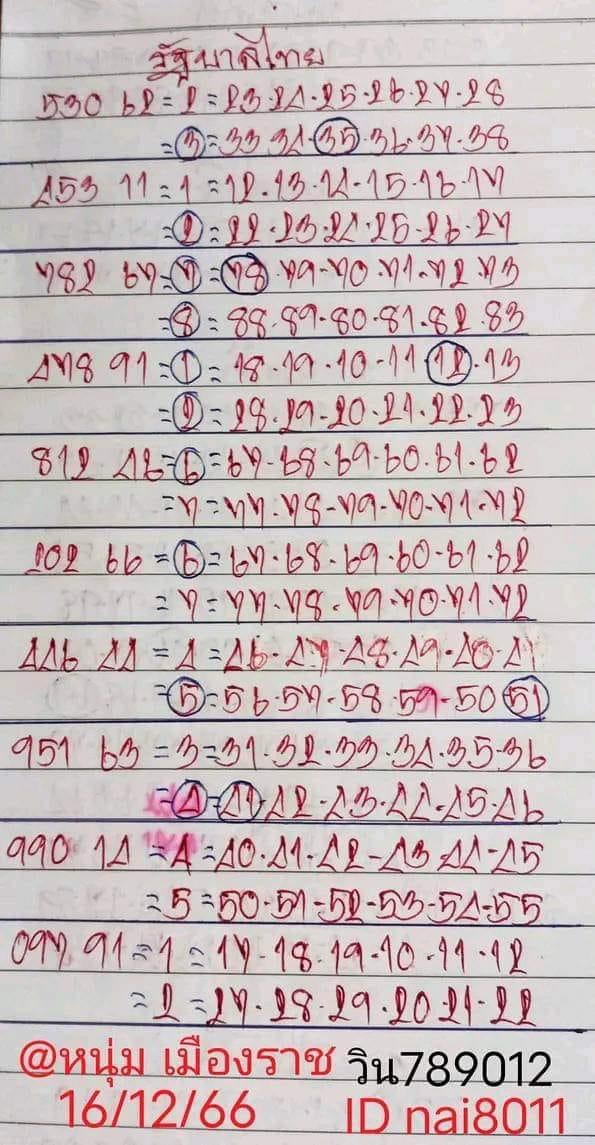 รัฐบาลไทย
530 62 = 2 = 23·24·25·26·27·28
= 3 = 33 34·35·36·37·38
453 11 = 1 = 12·13·14·15·16·17
= 2 = 22·23·24·25·26·27
782 67 = 7 = 78·79·70·71·72·73
= 8 = 88·89·80·81·82·83
478 91 = 1 = 18·19·10·11 12·13
= 2 = 28·29·20·21·22·23
812 46 = 6 = 67·68·69·60·61·62
= 7 = 77·78-79-70-71·72
202 66 = 6 = 67·68·69·60-61·62
= 7 = 77·78·79·70·71·72
446 44 = 4 = 46·47-48·49·40·41
= 5 = 56·57·58·59·50 51
951 63 = 3 = 31·32·33·34·35·36
= 4 = 41·42·43·44·45·46
990 14 = 4 = 40·41-42-43·44-45
= 5 = 50·51-52-53·54-55
097 91 = 1 = 17-18·19·10·11·12
= 2 = 27·28·29·20 21-22
@หนุ่ม เมืองราช วิน789012
16/12/66 ID nai8011